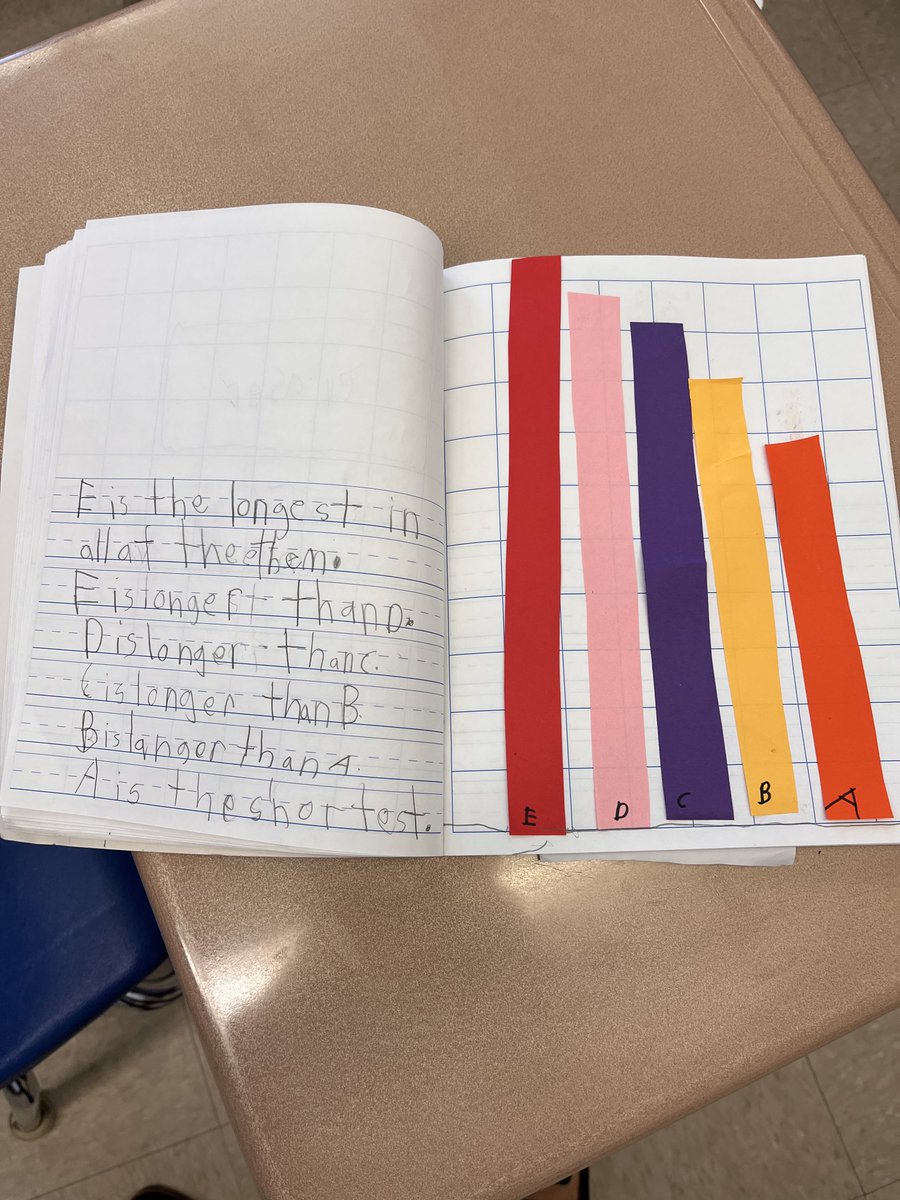 E is the longest in
all at theethem.
E is longest than D.
D is longer than C.
C is longer than B.
B is langer than A.
A is the shortest.
E D C B A